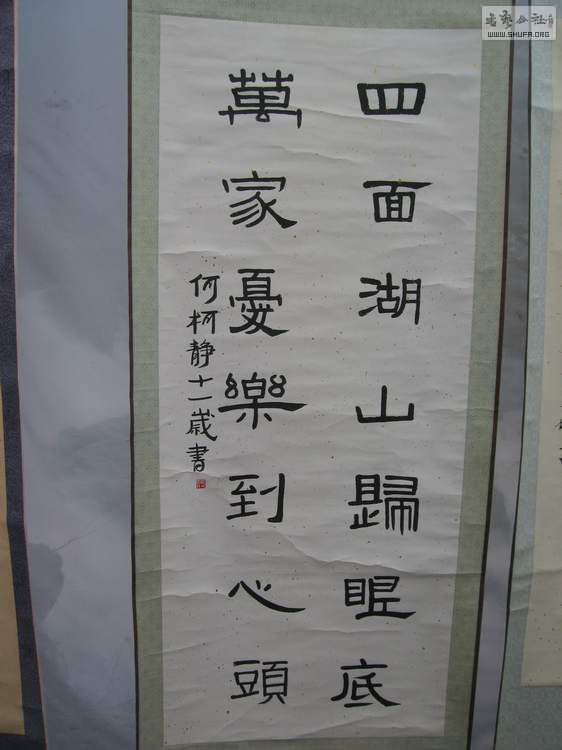 四面湖山歸眼底
萬家憂樂到心頭
何柯静十一歲書
書藝公社
WWW.SHUFA.ORG